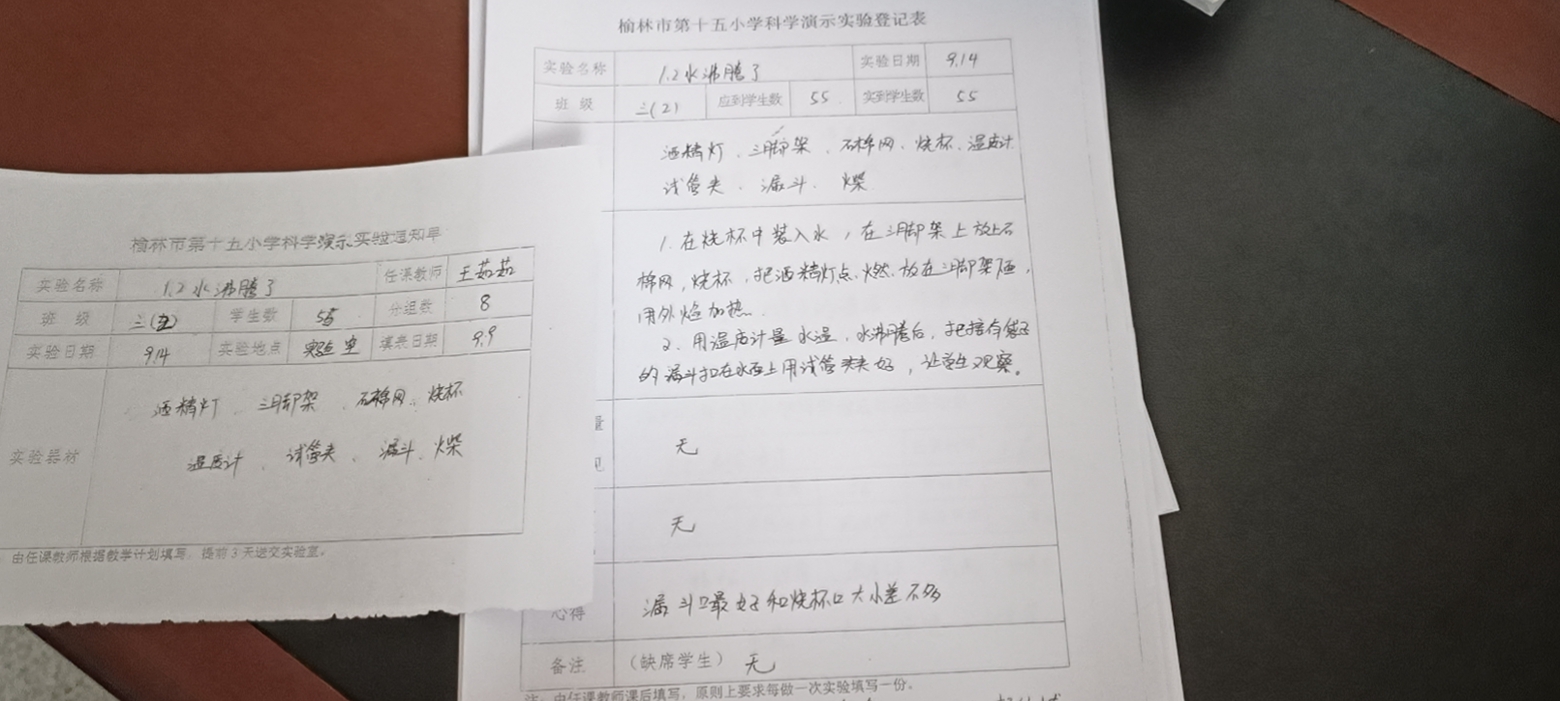 榆林市第十五小学科学演示实验登记表
实验名称 1.2水沸腾了 实验日期 9.14
班 级 三(2) 应到学生数 55 实到学生数 55
酒精灯、三脚架、石棉网、烧杯、温度计
试管夹、漏斗、火柴
1.在烧杯中装入水,在三脚架上放上石
棉网,烧杯,把酒精灯点燃,放在三脚架下面,
用外焰加热.
2.用温度计量水温,水沸腾后,把接有
的漏斗扣在水面上用试管夹夹好,让学生观察。
量
见
无
无
心得 漏斗口最好和烧杯口大小差不多
备注 (缺席学生) 无
注:由任课教师课后填写,原则上要求每做一次实验填写一份。
榆林市第十五小学科学演示实验通知单
实验名称 1.2水沸腾了 任课教师 王茹茹
班 级 三(2) 学生数 55 分组数 8
实验日期 9.14 实验地点 实验室 填表日期 9.9
实验器材
酒精灯、三脚架、石棉网、烧杯
温度计、试管夹、漏斗、火柴
由任课教师根据教学计划填写,提前3天送交实验室。